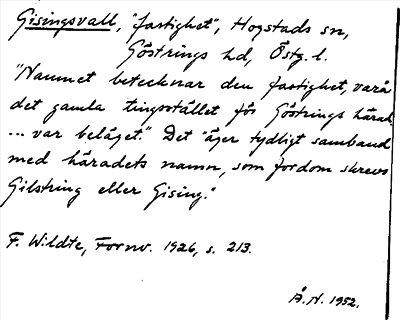 Gisingsvall, "fastighet", Hogstads sn,
Göstrings hd, Östg. l.
"Namnet betecknar den fastighet, varå
det gamla tingsstället för Göstrings härad
... var beläget." Det "äger tydligt samband
med häradets namn, som fordom skrevs
Gilstring eller Gising."
F. Wildte, Fornv. 1926, s. 213.
Å.N. 1952.